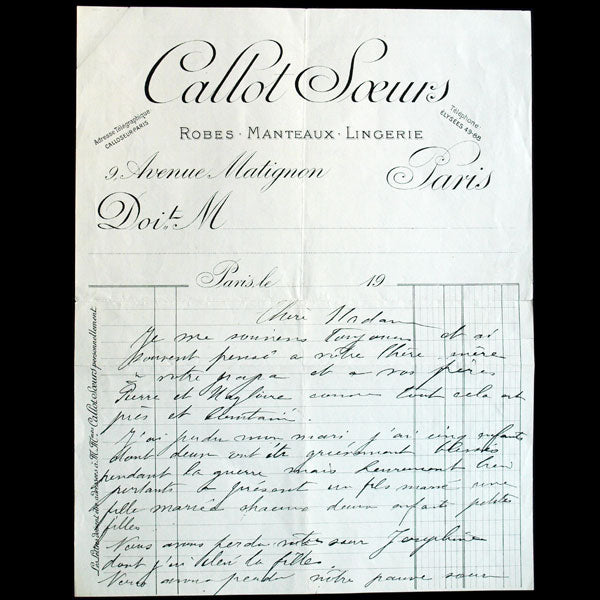 Callot Sœurs
Adresse Télégraphique
CALLOSEUR-PARIS
Téléphone:
ÉLYSÉES 49-88
ROBES · MANTEAUX · LINGERIE
9, Avenue Matignon
Paris
Doit M
Paris, le 19
Les lettres doivent être adressées à M.Mmes Callot Sœurs personnellement.
Chère Madame
Je me souviens toujours et ai
souvent pensé a votre chère mère
à votre papa et a vos frères
Pierre et comme tout cela est
près et lointain.
J'ai perdu mon mari j'ai cinq enfants
dont deux ont été grièvement blessés
pendant la guerre mais heureusement bien
portants a présent un fils marié une
fille mariée chacuns deux enfants petites
filles
Nous avons perdu notre sœur Joséphine
dont j'ai élevé la fille.
Nous avons perdu notre pauvre sœur